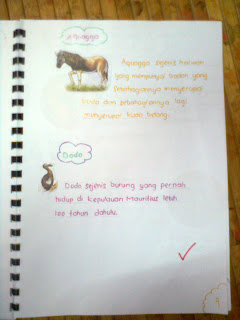 Quagga
Quagga sejenis haiwan
yang mempunyai badan yang
sebahagiannya menyerupai
kuda dan sebahagiannya lagi
menyerupai kuda belang.
Dodo
Dodo sejenis burung yang pernah
hidup di Kepulauan Mauritius lebih
100 tahun dahulu.